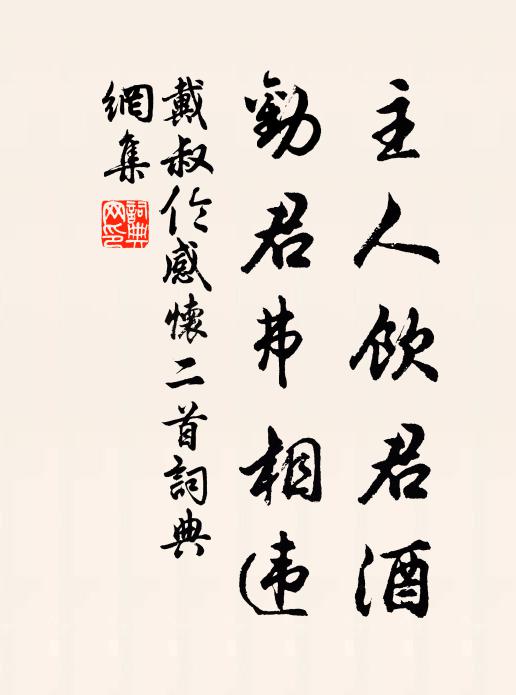 主人飲君酒
勸君弗相违
戴叔伦感懷二首詞典
網集
詞典
网印